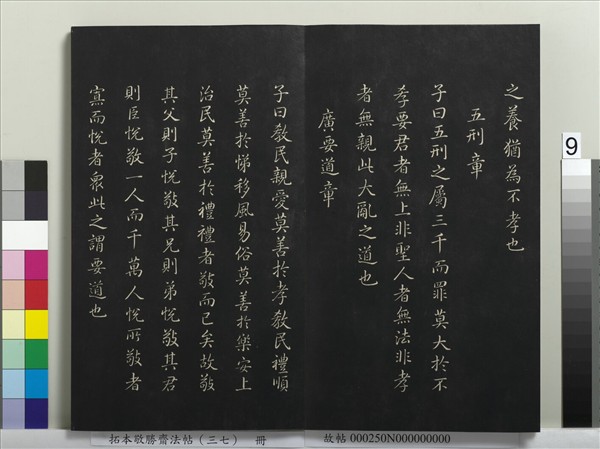 之養猶為不孝也
五刑章
子曰五刑之屬三千而罪莫大於不
孝要君者無上非聖人者無法非孝
者無親此大亂之道也
廣要道章
子曰教民親愛莫善於孝教民禮順
莫善於悌移風易俗莫善於樂安上
治民莫善於禮禮者敬而已矣故敬
其父則子悅敬其兄則弟悅敬其君
則臣悅敬一人而千萬人悅所敬者
寡而悅者衆此之謂要道也
9
拓本敬勝齋法帖(三七) 冊
故帖 000250N000000000